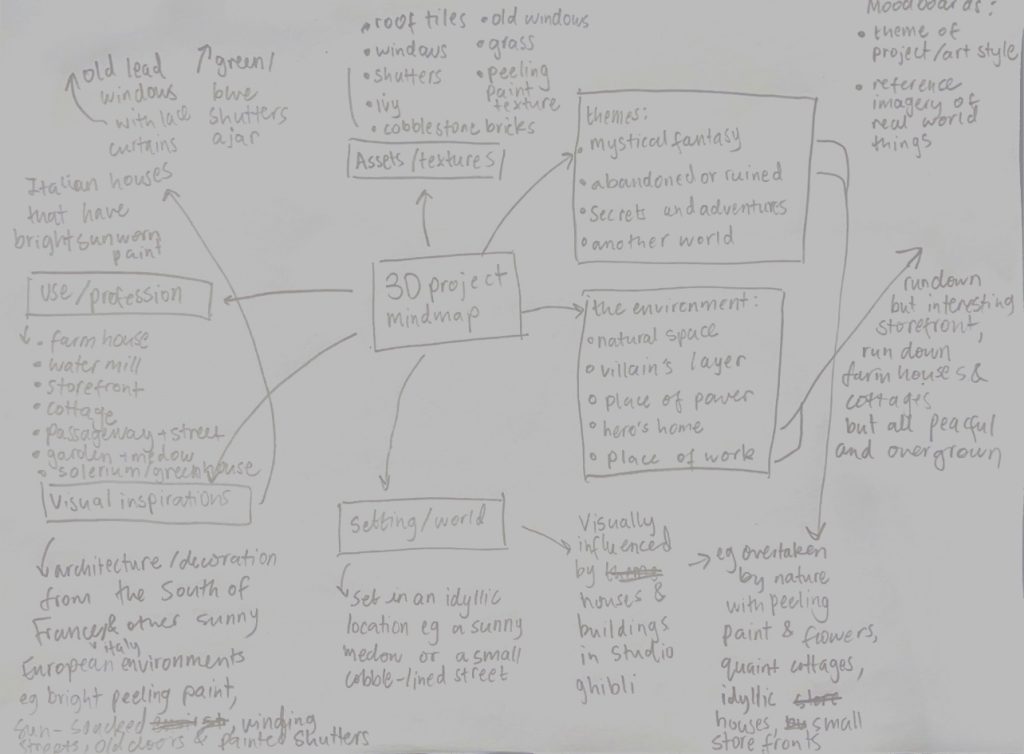 Moodboards:
• theme of
project/art style
• reference
imagery of
real world
things
• roof tiles
• windows
• shutters
• ivy
• cobblestone bricks
• old windows
• grass
• peeling
paint
texture
Assets/textures
old lead
windows
with lace
curtains
green/
blue
shutters
ajar
Italian houses
that have
bright sunworn
paint
themes:
• mystical fantasy
• abandoned or ruined
• secrets and adventures
• another world
3D project
mindmap
use/profession
• farm house
• water mill
• storefront
• cottage
• passageway + street
• garden + medow
• solerium/greenhouse
the environment:
• natural space
• villain's layer
• place of power
• here's home
• place of work
rundown
but interesting
storefront,
run down
farm houses &
cottages
but all peacful
and overgrown
Visual inspirations
architecture/decoration
from the South of
France, & other sunny
italy
European environments
eg bright peeling paint,
sun-soacked, winding
streets, old doors & painted shutters
setting/world
set in an idyllic
location eg a sunny
medow or a small
cobble-lined street
Visually
influenced
by
houses &
buildings
in Studio
ghibli
eg overtaken
by nature
with peeling
paint & flowers,
quaint cottages,
idyllic
houses, small
store fronts